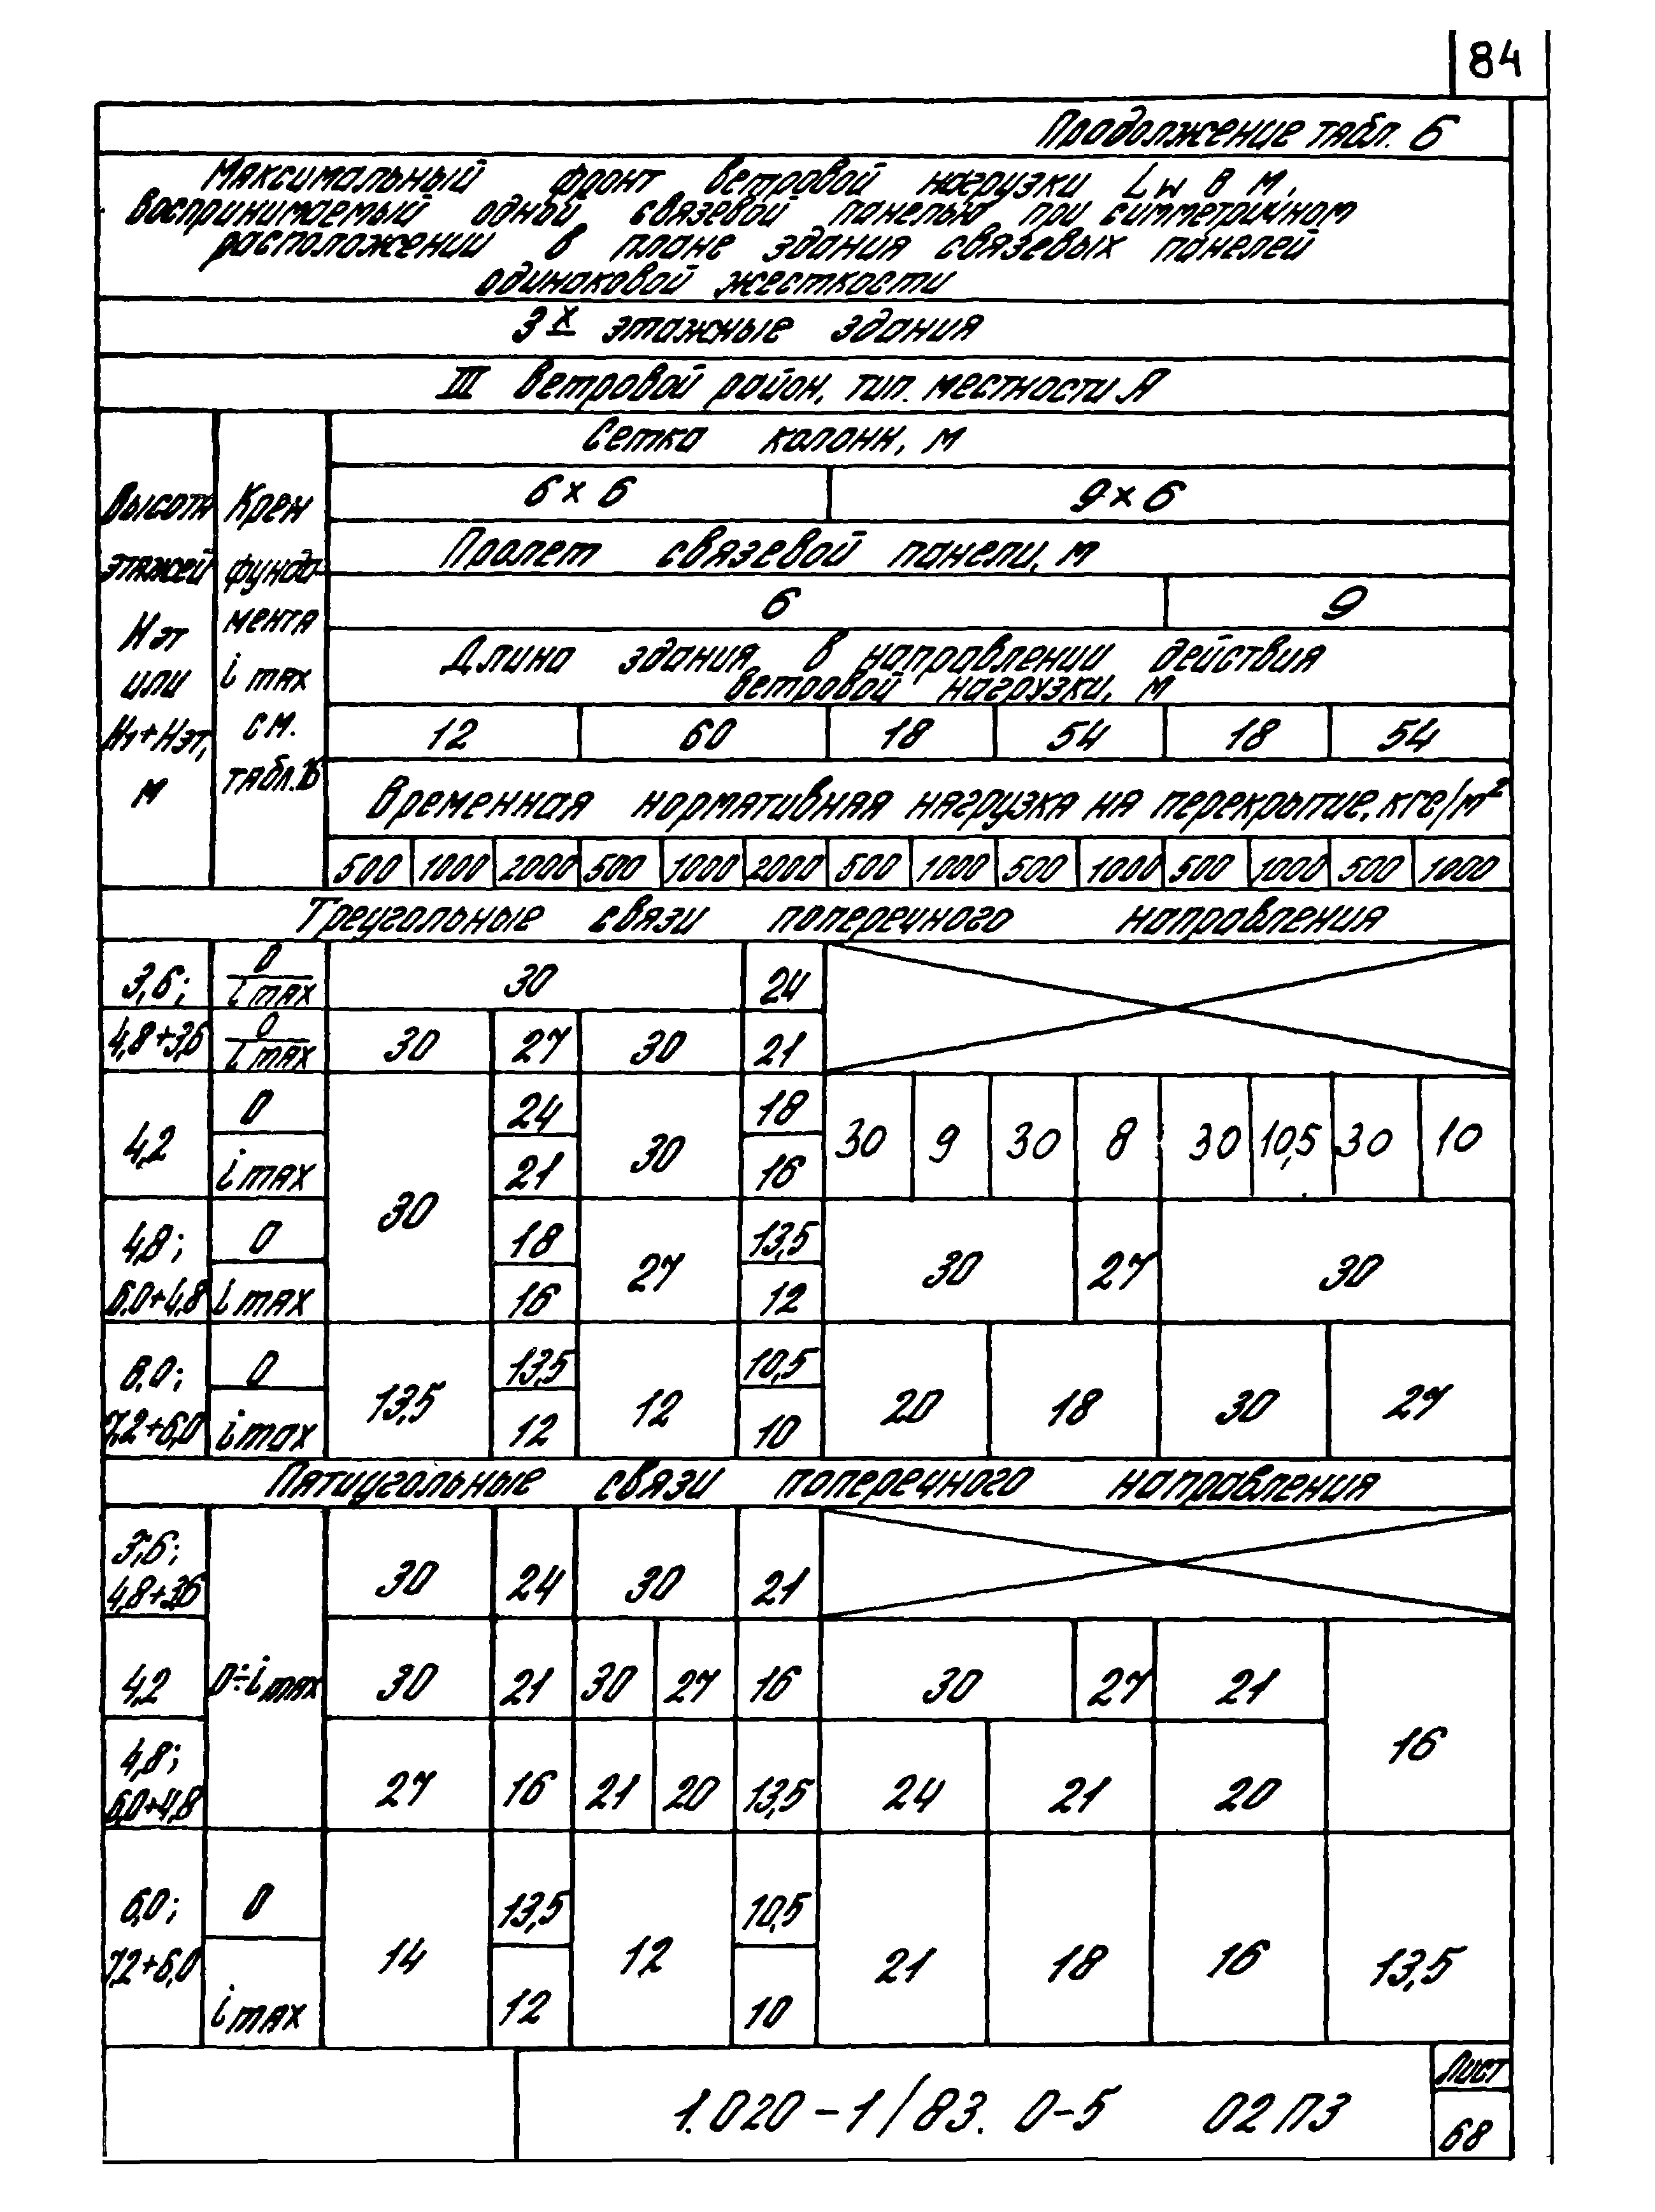 84
Продолжение табл. 6
Максимальный фронт ветровой нагрузки Lw в м,
воспринимаемый одной связевой панелью при симметричном
расположении в плане здания связевых панелей
одинаковой жесткости
3х этажные здания
III ветровой район, тип местности А
Высота
этажей
Hэт
или
H1+Hэт,
м
Крен
фунда
мента
i max
см.
табл.16
Сетка колонн, м
6×6 9×6
Пролет связевой панели, м
6 9
Длина здания в направлении действия
ветровой нагрузки, м
12 60 18 54 18 54
Временная нормативная нагрузка на перекрытие, кгс/м²
500 1000 2000 500 1000 2000 500 1000 500 1000 500 1000 500 1000
Треугольные связи поперечного направления
3,6; 0/i max 30 24
4,8+3,6 0/i max 30 27 30 21
4,2 0 24 18
i max 21 30 16 30 9 30 8 30 10,5 30 10
30
4,8; 0 18 13,5
27 30 27 30
6,0+4,8 i max 16 12
6,0; 0 13,5 10,5
13,5 12 20 18 30 27
7,2+6,0 i max 12 10
Пятиугольные связи поперечного направления
3,6;
4,8+3,6 30 24 30 21
4,2 0÷i max 30 21 30 27 16 30 27 21
16
4,8;
6,0+4,8 27 16 21 20 13,5 24 21 20
6,0; 0 13,5 10,5
7,2+6,0 14 12 21 18 16 13,5
i max 12 10
1.020-1/83. 0-5 02ПЗ
Лист
68